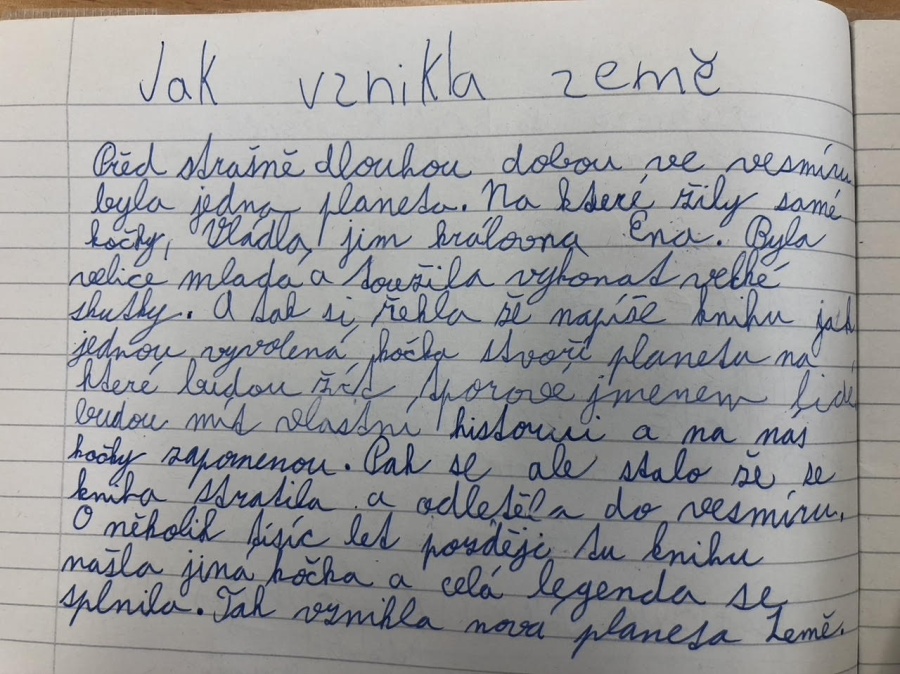 Jak vznikla země
Před strašně dlouhou dobou ve vesmíru
byla jedna planeta. Na které žily samé
kočky, Vládla jim královna Ena. Byla
velice mladá a toužila vykonat velké
skutky. A tak si řekla že napíše knihu jak
jednou vyvolená kočka stvoří planetu na
které budou žít tvorové jmenem lidé
budou mít vlastní historii a na nas
kočky zapomenou. Pak se ale stalo že se
kniha stratila a odletěla do vesmíru.
O několik tisíc let později tu knihu
našla jina kočka a celá legenda se
splnila. Tak vznikla nová planeta Země.